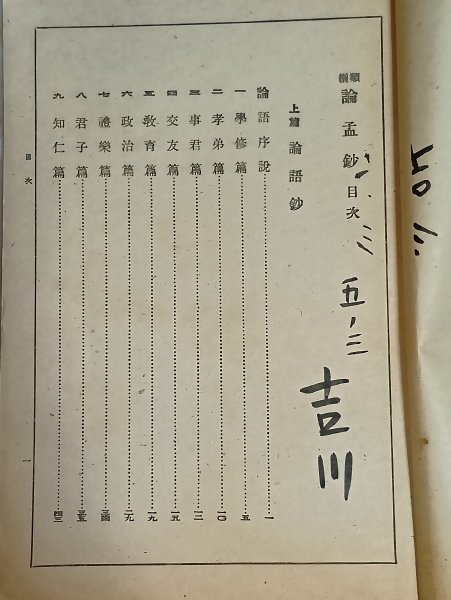 類編 論孟鈔 目次
上篇 論語鈔
論語序說 一
一 學修篇 五
二 孝弟篇 一〇
三 事君篇 一二
四 交友篇 一五
五 敎育篇 一九
六 政治篇 二九
七 禮樂篇 三四
八 君子篇 三五
九 知仁篇 四三
目次
一
五、三
吉川